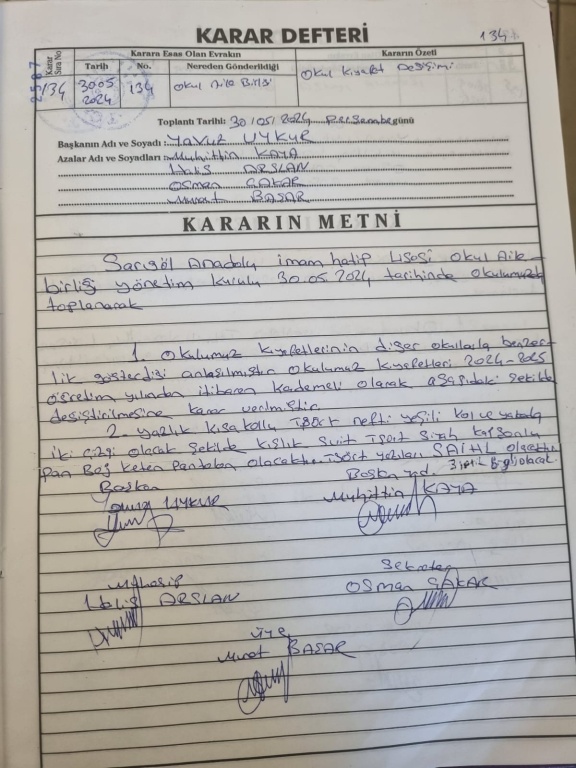 KARAR DEFTERİ
134
Karar Sıra No
Karara Esas Olan Evrakın
Kararın Özeti
Tarih
No.
Nereden Gönderildiği
134
30.05
2024
134
Okul Aile Birliği
Okul Kıyafet Değişimi
Toplantı Tarihi: 30/05/2024 Perşembe günü
Başkanın Adı ve Soyadı: Yavuz UYKUR
Azalar Adı ve Soyadları: Muhittin KAYA
Halis ARSLAN
Osman SAKAR
Murat BAŞAR
KARARIN METNİ
Sarıgöl Anadolu imam hatip Lisesi Okul Aile
birliği yönetim kurulu 30.05.2024 tarihinde okulumuzda
toplanarak
1. Okulumuz kıyafetlerinin diğer okullarla benzer-
lik gösterdiği anlaşılmıştır okulumuz kıyafetleri 2024-2025
öğretim yılından itibaren kademeli olarak aşağıdaki şekilde
değiştirilmesine karar verilmiştir.
2- yazlık kısa kollu Tişört nefti yeşili kol ve yakada
iki çizgi olacak şekilde kışlık Swit Tişört siyah
Keten Pantolon olacaktır. Tişört yazıları SAİHL olacaktır
Başkan
UYKUR
Başkan yrd.
Muhittin KAYA
Muhasip
Halis ARSLAN
Sekreter
Osman SAKAR
Üye
Murat BAŞAR